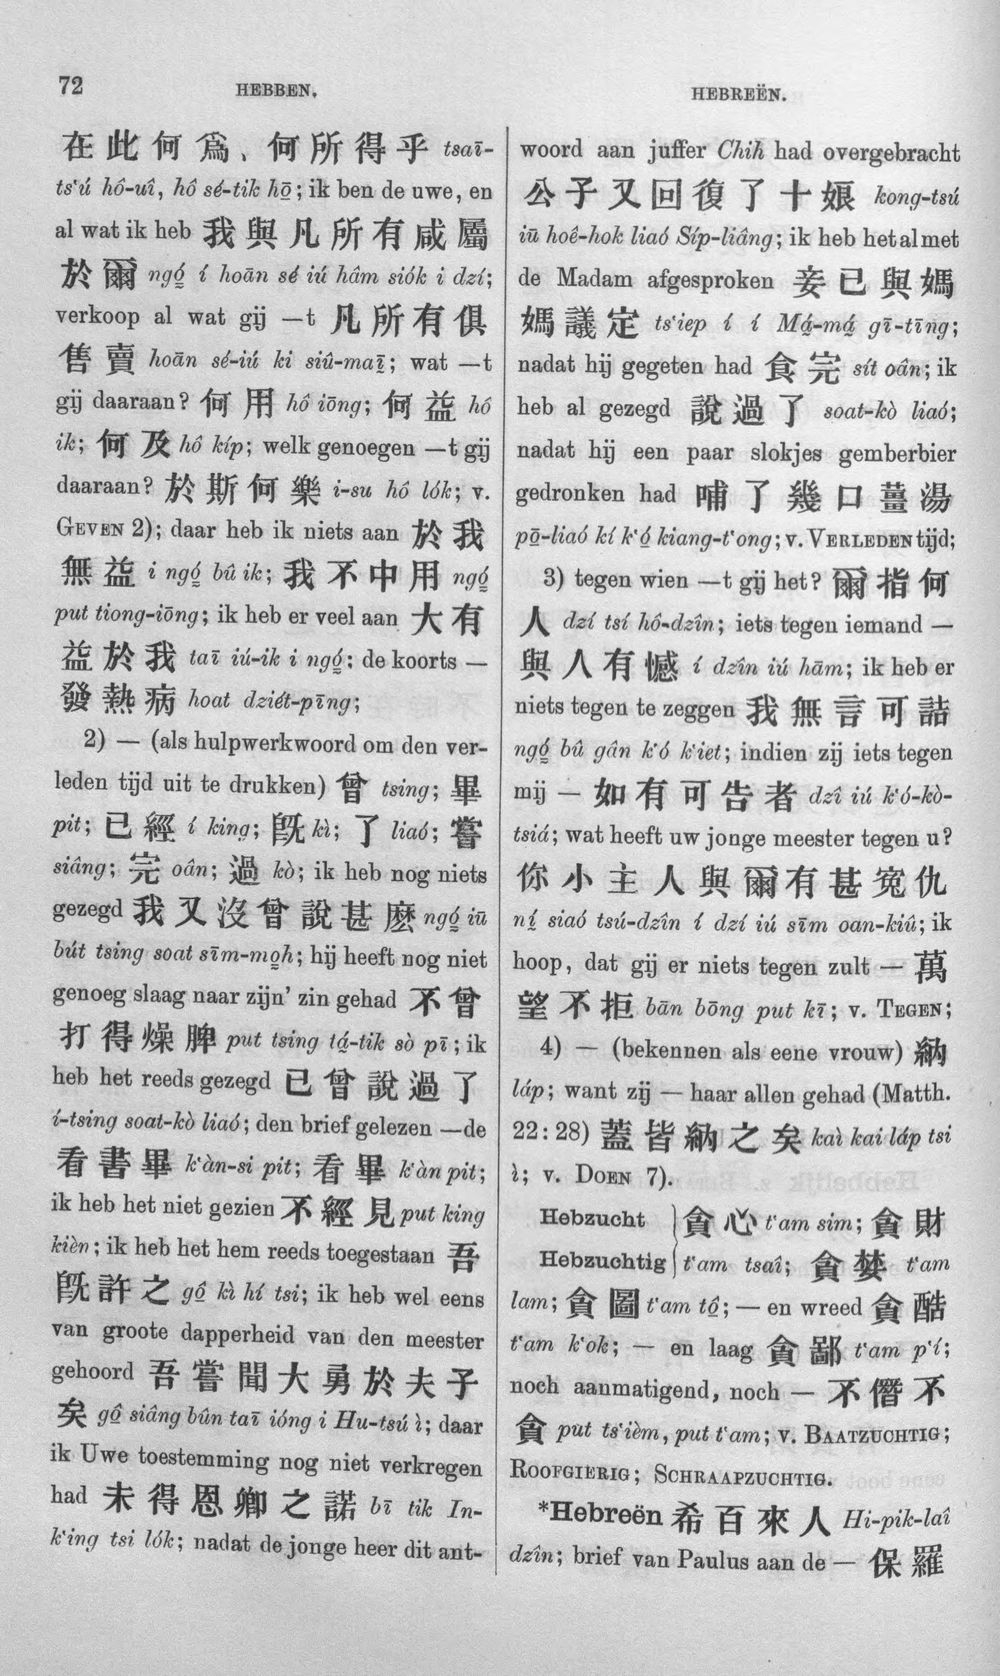 72
HEBBEN.
HEBREËN.
在此何爲、何所得乎 tsaī-
ts‘ú hô-uî, hô sé-tik hō͘; ik ben de uwe, en
al wat ik heb 我與凡所有咸屬
於爾 ngó͘ í hoān sé iú hâm siók i dzí;
verkoop al wat gij —t 凡所有俱
售賣 hoān sé-iú ki siû-maī; wat —t
gij daaraan? 何用 hô iōng; 何益 hô
ik; 何及 hô kíp; welk genoegen —t gij
daaraan? 於斯何樂 i-su hô lók; v.
GEVEN 2); daar heb ik niets aan 於我
無益 i ngó͘ bû ik; 我不中用 ngó͘
put tiong-iōng; ik heb er veel aan 大有
益於我 taī iú-ik i ngó͘; de koorts —
發熱病 hoat dziét-pīng;
2) — (als hulpwerkwoord om den ver-
leden tijd uit te drukken) 曾 tsing; 畢
pit; 已經 í king; 旣 kì; 了 liaó; 嘗
siâng; 完 oân; 過 kò; ik heb nog niets
gezegd 我又沒曾說甚麽 ngó͘ iū
bút tsing soat sīm-mo͘h; hij heeft nog niet
genoeg slaag naar zijn’ zin gehad 不曾
打得燥脾 put tsing tá-tik sò pī; ik
heb het reeds gezegd 已曾說過了
í-tsing soat-kò liaó; den brief gelezen —de
看書畢 k‘àn-si pit; 看畢 k‘àn pit;
ik heb het niet gezien 不經見 put king
kièn; ik heb het hem reeds toegestaan 吾
旣許之 gô͘ kì hí tsi; ik heb wel eens
van groote dapperheid van den meester
gehoord 吾嘗聞大勇於夫子
矣 gô͘ siâng bûn taī ióng i Hu-tsú ì; daar
ik Uwe toestemming nog niet verkregen
had 未得恩卿之諾 bī tik In-
k‘ing tsi lók; nadat de jonge heer dit ant-
woord aan juffer Chih had overgebracht
公子又回復了十娘 kong-tsú
iū hoê-hok liaó Síp-liâng; ik heb het al met
de Madam afgesproken 妾已與媽
媽議定 ts‘iep í í Má-má gī-tīng;
nadat hij gegeten had 食完 sít oân; ik
heb al gezegd 說過了 soat-kò liaó;
nadat hij een paar slokjes gemberbier
gedronken had 哺了幾口薑湯
pō͘-liaó kí k‘ó͘ kiang-t‘ong; v. VERLEDEN tijd;
3) tegen wien —t gij het? 爾指何
人 dzí tsí hô-dzîn; iets tegen iemand —
與人有憾 í dzîn iú hām; ik heb er
niets tegen te zeggen 我無言可詰
ngó͘ bû gân k‘ó k‘iet; indien zij iets tegen
mij — 如有可告者 dzî iú k‘ó-kò-
tsiá; wat heeft uw jonge meester tegen u?
你小主人與爾有甚寃仇
ní siaó tsú-dzîn í dzí iú sīm oan-kiû; ik
hoop, dat gij er niets tegen zult — 萬
望不拒 bān bōng put kī; v. TEGEN;
4) — (bekennen als eene vrouw) 納
láp; want zij — haar allen gehad (Matth.
22: 28) 蓋皆納之矣 kaì kai láp tsi
ì; v. DOEN 7).
Hebzucht } 貪心 t‘am sim; 貪財
Hebzuchtig } t‘am tsaî; 貪婪 t‘am
lam; 貪圖 t‘am tô͘; — en wreed 貪酷
t‘am k‘ok; — en laag 貪鄙 t‘am p‘í;
noch aanmatigend, noch — 不僭不
貪 put ts‘ièm, put t‘am; v. BAATZUCHTIG;
ROOFGIERIG; SCHRAAPZUCHTIG.
*Hebreën 希百來人 Hi-pik-laî
dzîn; brief van Paulus aan de — 保羅